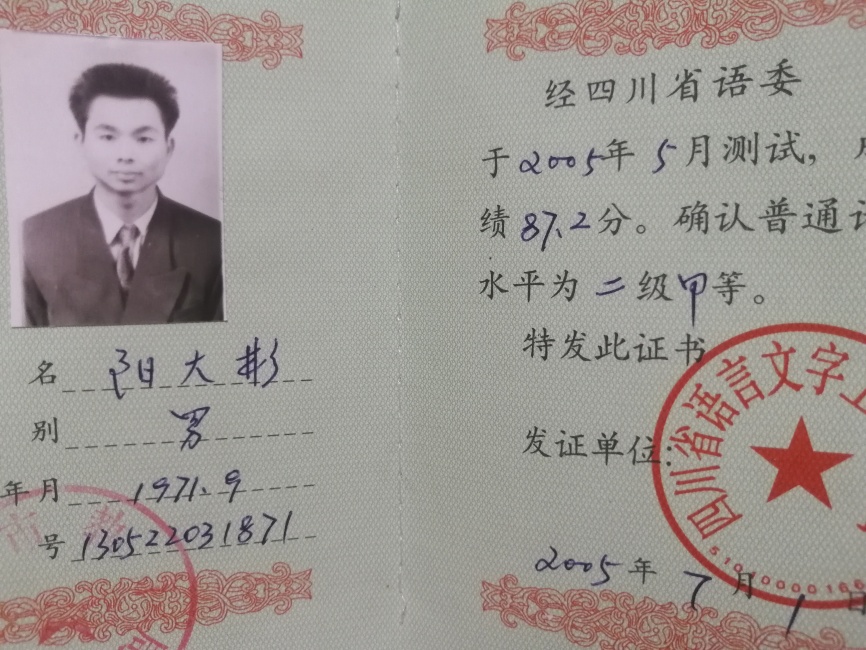 名 阳大彬
别 男
年月 1971.9
号 130522031871
经四川省语委
于2005年5月测试,
绩87.2分。确认普通
水平为二级甲等。
特发此证书
发证单位:
四川省语言文字工
2005年7月1日